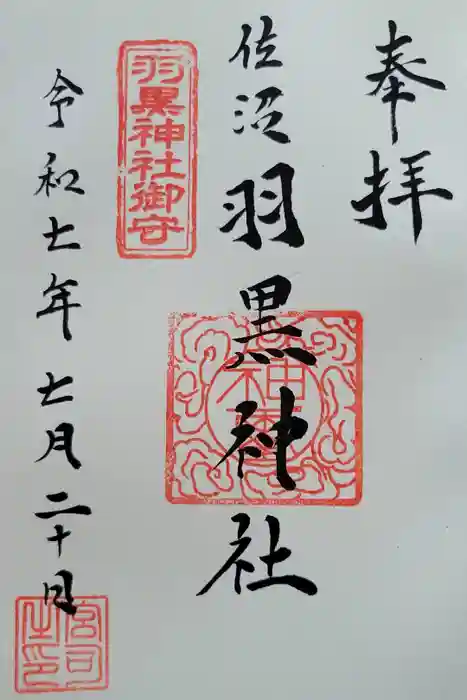 奉拝
佐沼
羽黒神社
羽黒神社御守
令和七年七月二十日
宮司之印